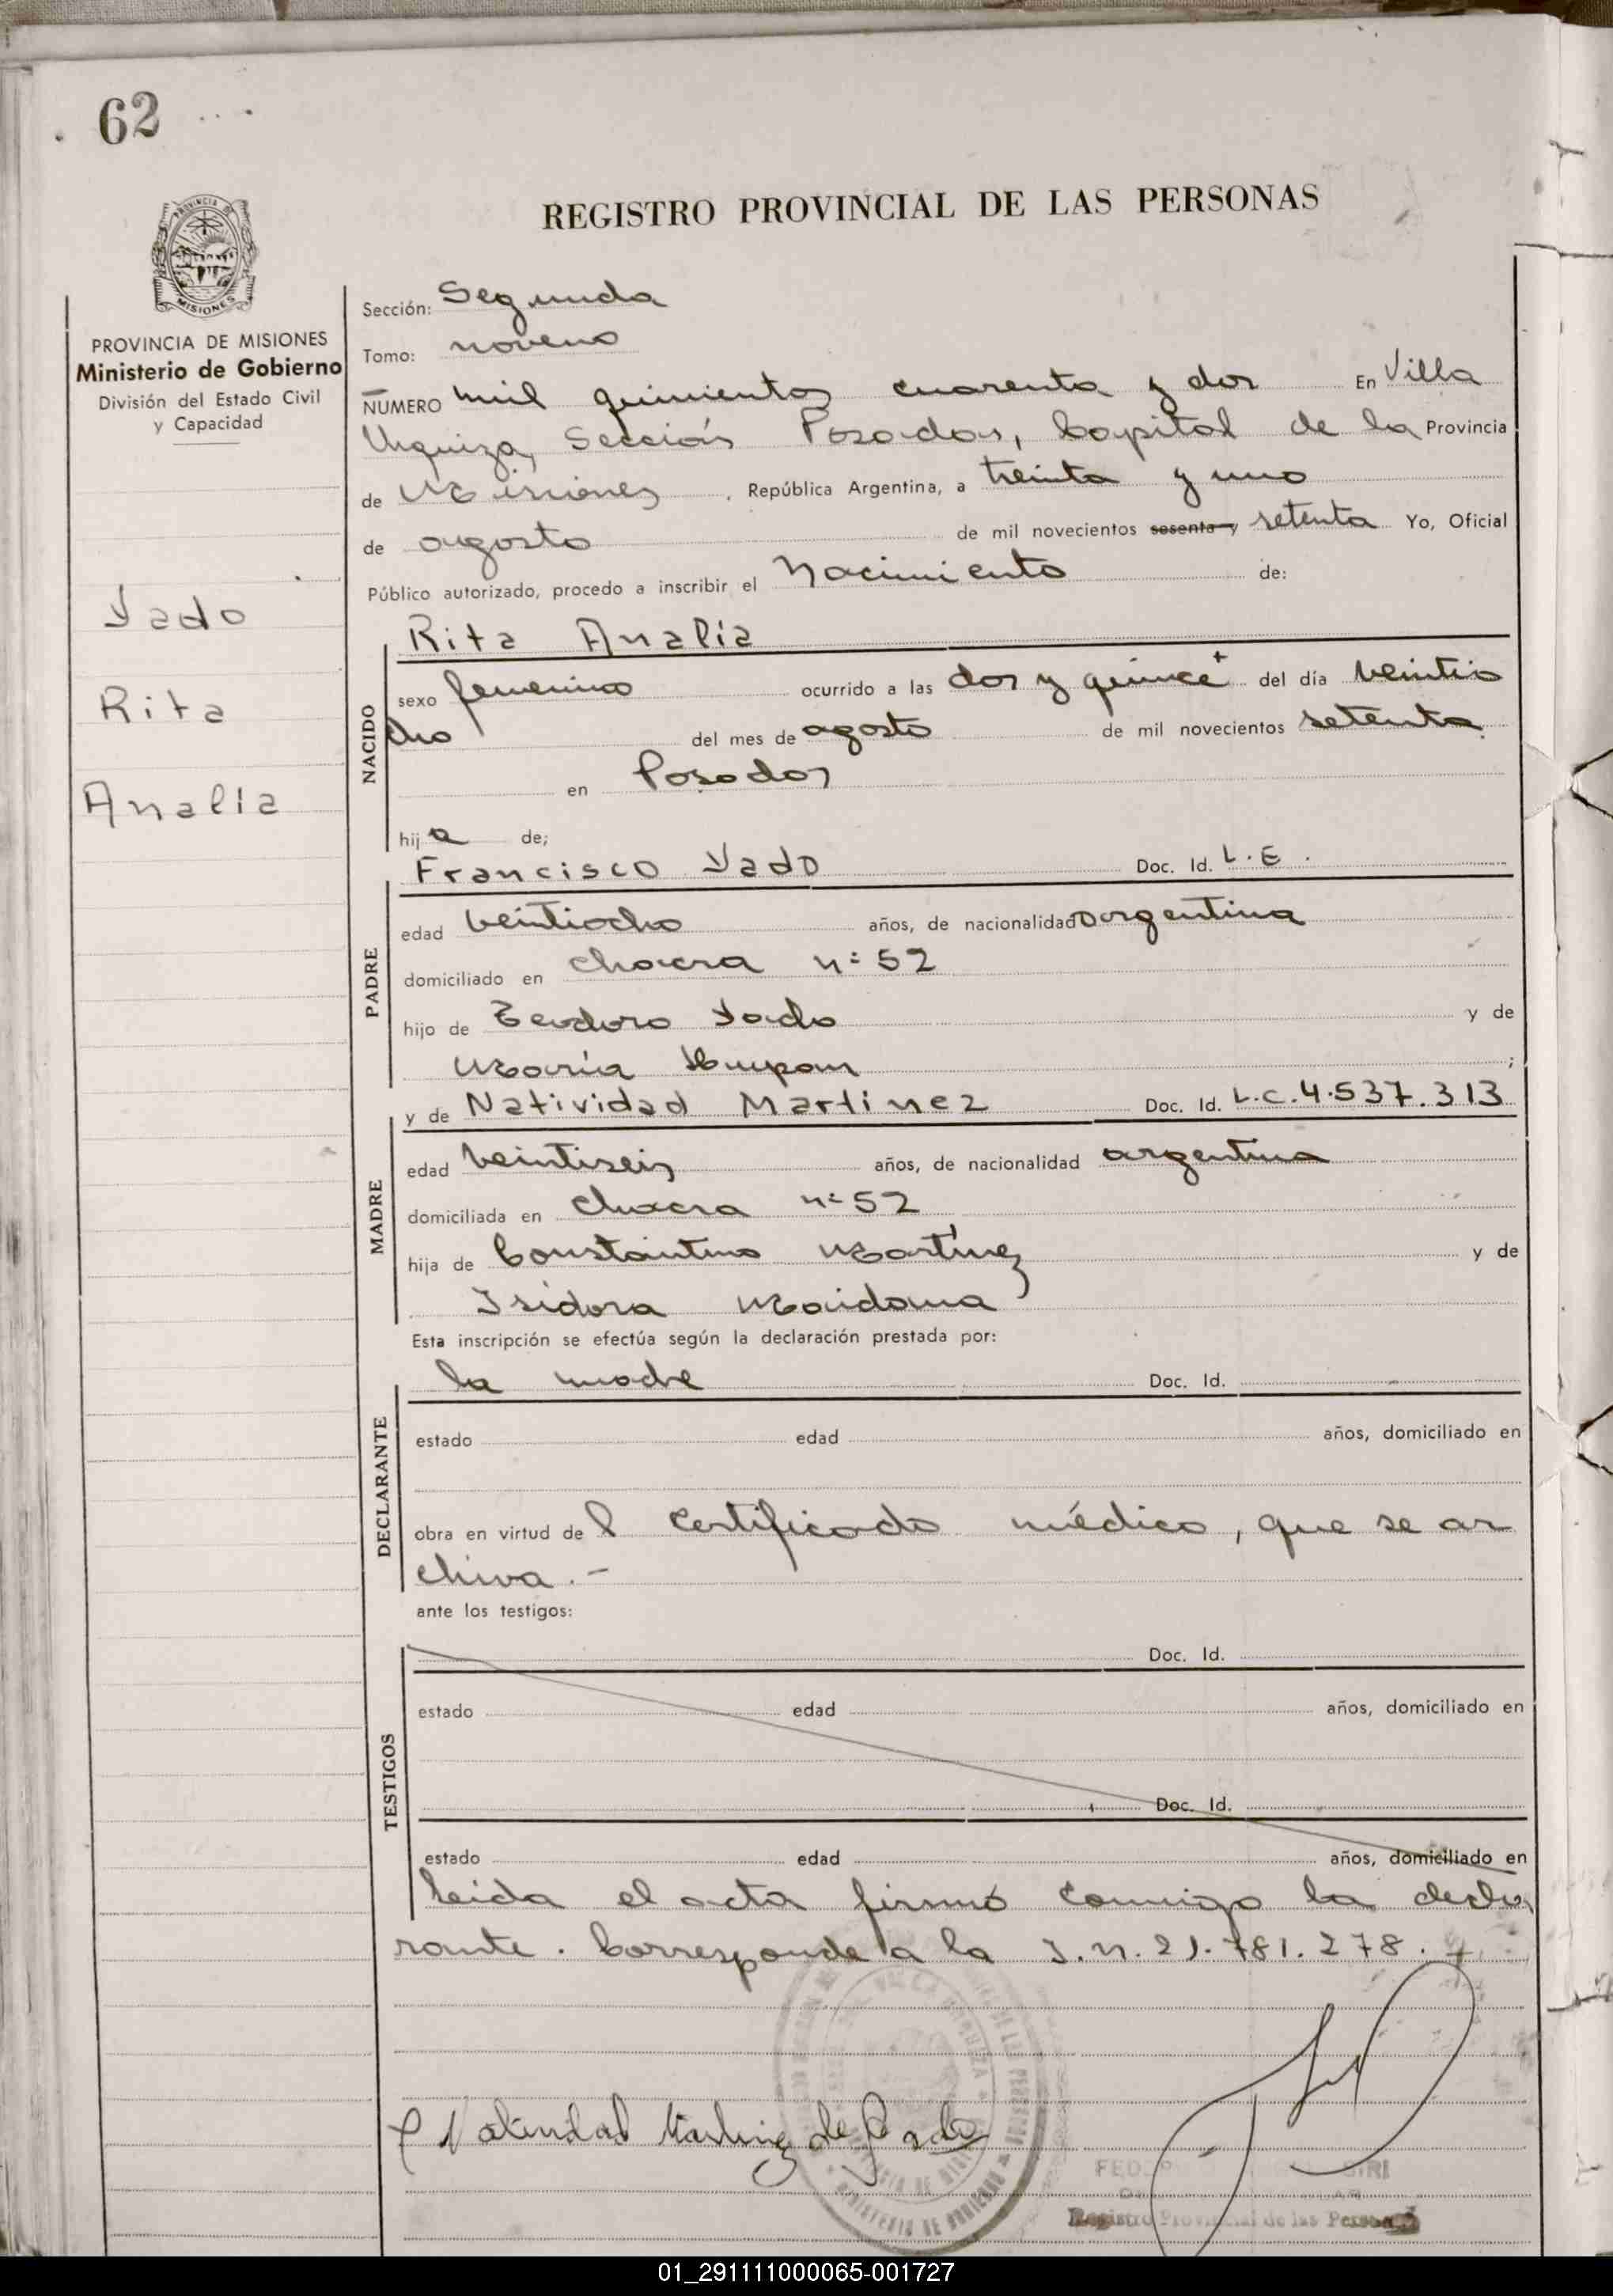 62
REGISTRO PROVINCIAL DE LAS PERSONAS
PROVINCIA DE MISIONES
Ministerio de Gobierno
División del Estado Civil
y Capacidad
Yado
Rita
Analía
Sección: Segunda
Tomo: noveno
NUMERO mil quinientos cuarenta y dos En Villa
Urquiza, Sección Posadas, Capital de la Provincia
de Misiones, República Argentina, a treinta y uno
de agosto de mil novecientos sesenta y setenta Yo, Oficial
Público autorizado, procedo a inscribir el Nacimiento de:
Rita Analía
NACIDO
sexo femenino ocurrido a las dos y quince + del día veintio
cho del mes de agosto de mil novecientos setenta
en Posadas
hija de;
Francisco Yado Doc. Id. L.E.
PADRE
edad veintiocho años, de nacionalidad argentina
domiciliado en chacra n: 52
hijo de Teodoro Yado y de
María ;
y de Natividad Martinez Doc. Id. L.C. 4.537.313
MADRE
edad veintiseis años, de nacionalidad argentina
domiciliada en chacra n: 52
hija de Constantino Martínez y de
Isidora Maidana
Esta inscripción se efectúa según la declaración prestada por:
la madre Doc. Id.
DECLARANTE
estado edad años, domiciliado en
obra en virtud del certificado médico, que se ar
chiva.-
ante los testigos:
Doc. Id.
TESTIGOS
estado edad años, domiciliado en
Doc. Id.
estado edad años, domiciliado en
leída el acta firmó conmigo la decla
rante. Corresponde a la I.N. 21.781.278.
Natividad Martinez de Yado
Registro Provincial de las Personas
01_291111000065-001727